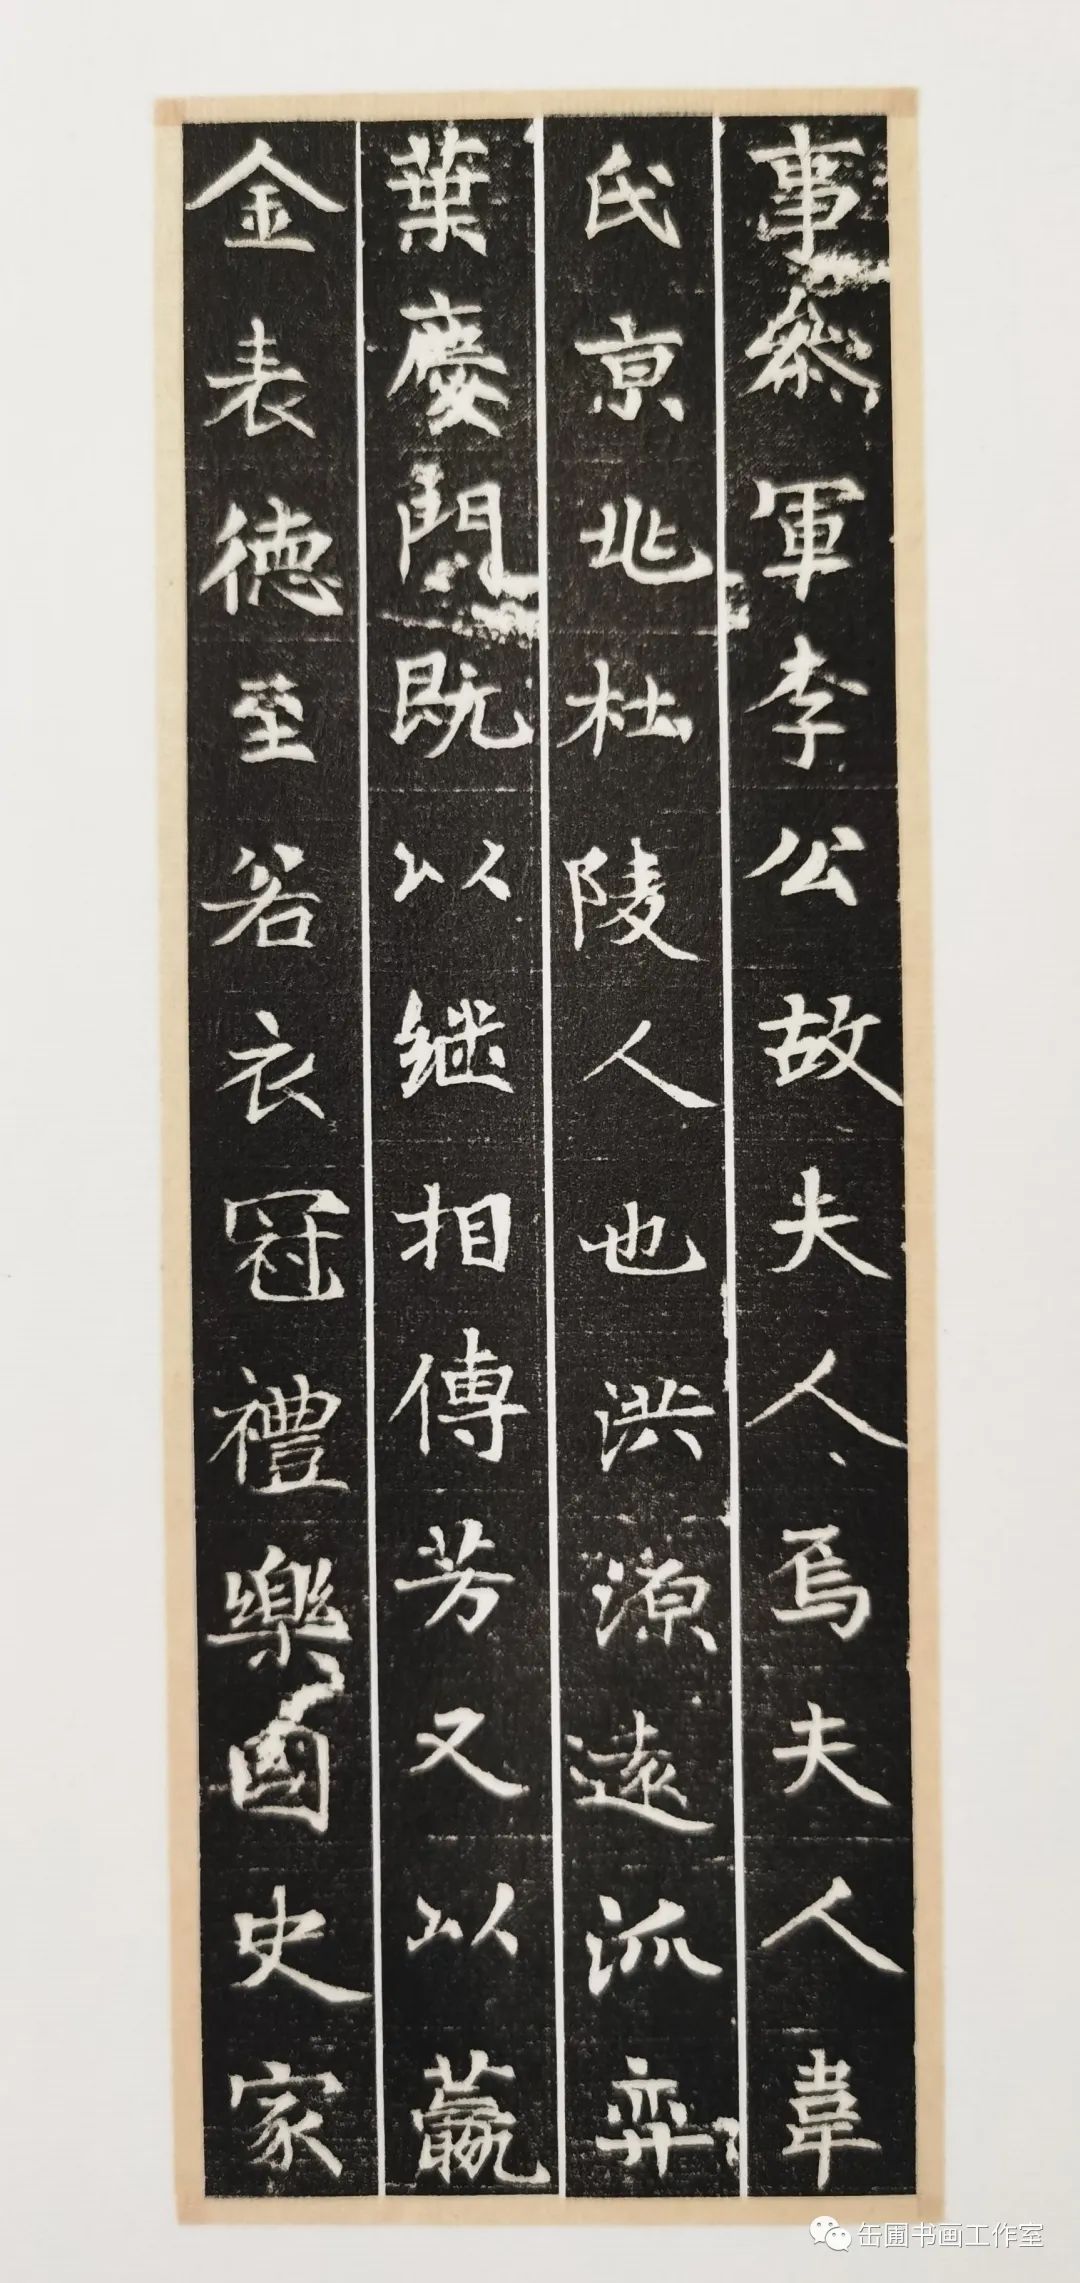 事叅軍李公故夫人焉夫人韋
氏京兆杜陵人也洪源遠派弈
葉慶門既以继相傳芳又以籝
金表德至若衣冠禮樂國史家
缶圃书画工作室